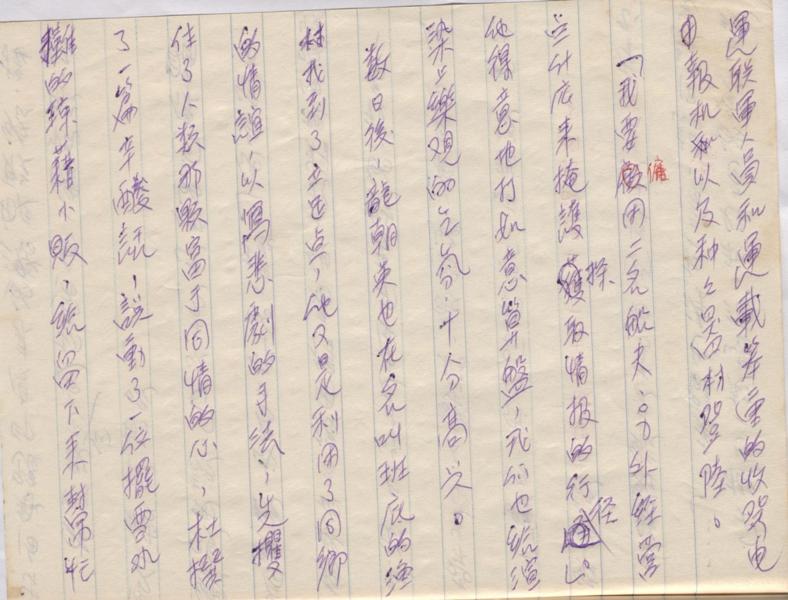 運联軍人員和運載笨重的收發电
报机和以及种之器材登陸。
「我要僱用二名船夫，另外经营
些什店来掩護採取情报的行径」。
他得意地打如意算盤，我们也给渲
染上樂观的之气氛，十分高兴。
数日後，龍朝英也在名叫班底的渔
村找到了立足点，他又是利用了同鄉
的情誼，以寫悲劇的手法，先攫
住了人类那颗富于同情的心，杜撰
了一篇辛酸話，說動了一位擺賣水
攤的蘇藉小販，给留下来幫忙